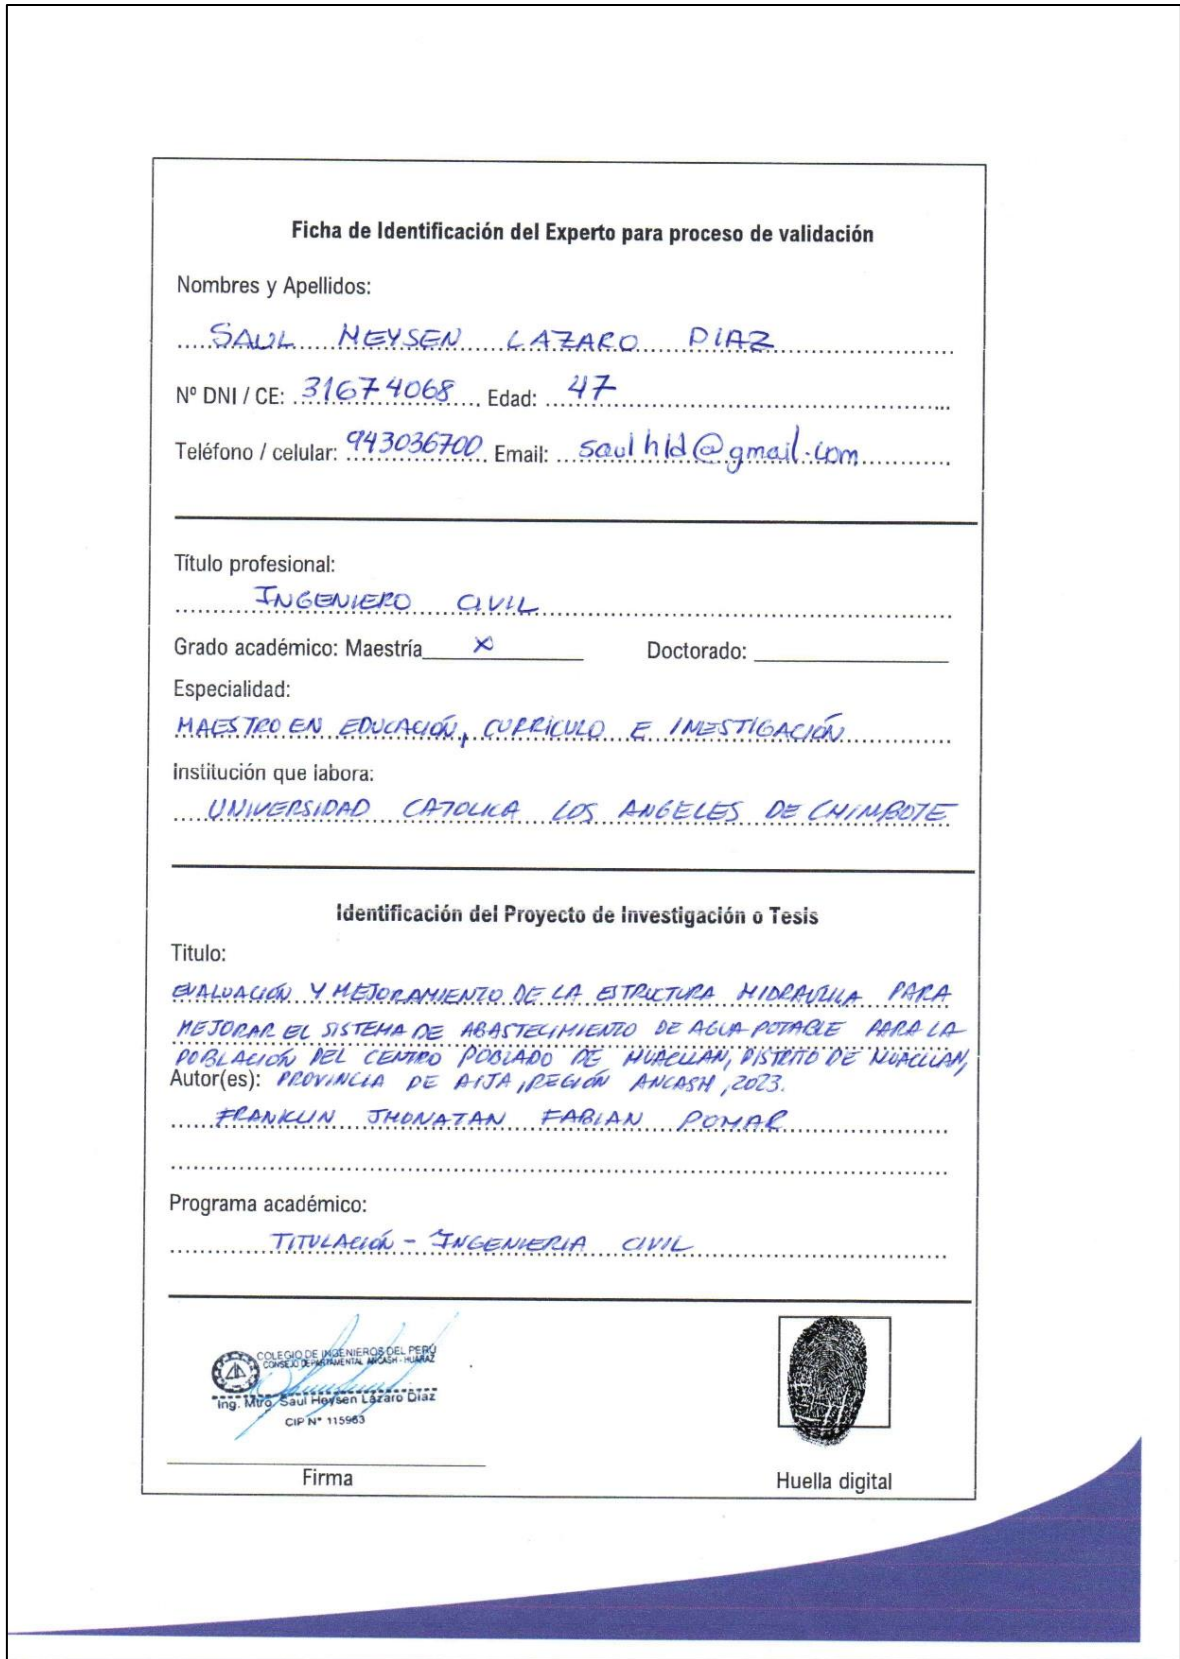 Ficha de Identificación del Experto para proceso de validación
Nombres y Apellidos:
SAUL HEYSEN LAZARO DIAZ
Nº DNI / CE: 31674068 Edad: 47
Teléfono / celular: 943036700 Email: saulhld@gmail.com
Título profesional:
INGENIERO CIVIL
Grado académico: Maestría x Doctorado:
Especialidad:
MAESTRO EN EDUCACIÓN, CURRICULO E INVESTIGACIÓN
Institución que labora:
UNIVERSIDAD CATOLICA LOS ANGELES DE CHIMBOTE
Identificación del Proyecto de Investigación o Tesis
Titulo:
EVALUACIÓN Y MEJORAMIENTO DE LA ESTRUCTURA HIDRAULICA PARA
MEJORAR EL SISTEMA DE ABASTECIMIENTO DE AGUA POTABLE PARA LA
POBLACIÓN DEL CENTRO POBLADO DE HUACLLAN, DISTRITO DE HUACLLAN,
Autor(es): PROVINCIA DE AIJA, REGIÓN ANCASH, 2023.
FRANKLIN JHONATAN FABIAN POMAR
Programa académico:
TITULACIÓN - INGENIERIA CIVIL
COLEGIO DE INGENIEROS DEL PERÚ
CONSEJO DEPARTAMENTAL ANCASH - HUARAZ
Ing. Mtro. Saul Heysen Lázaro Díaz
CIP N° 115963
Firma
Huella digital